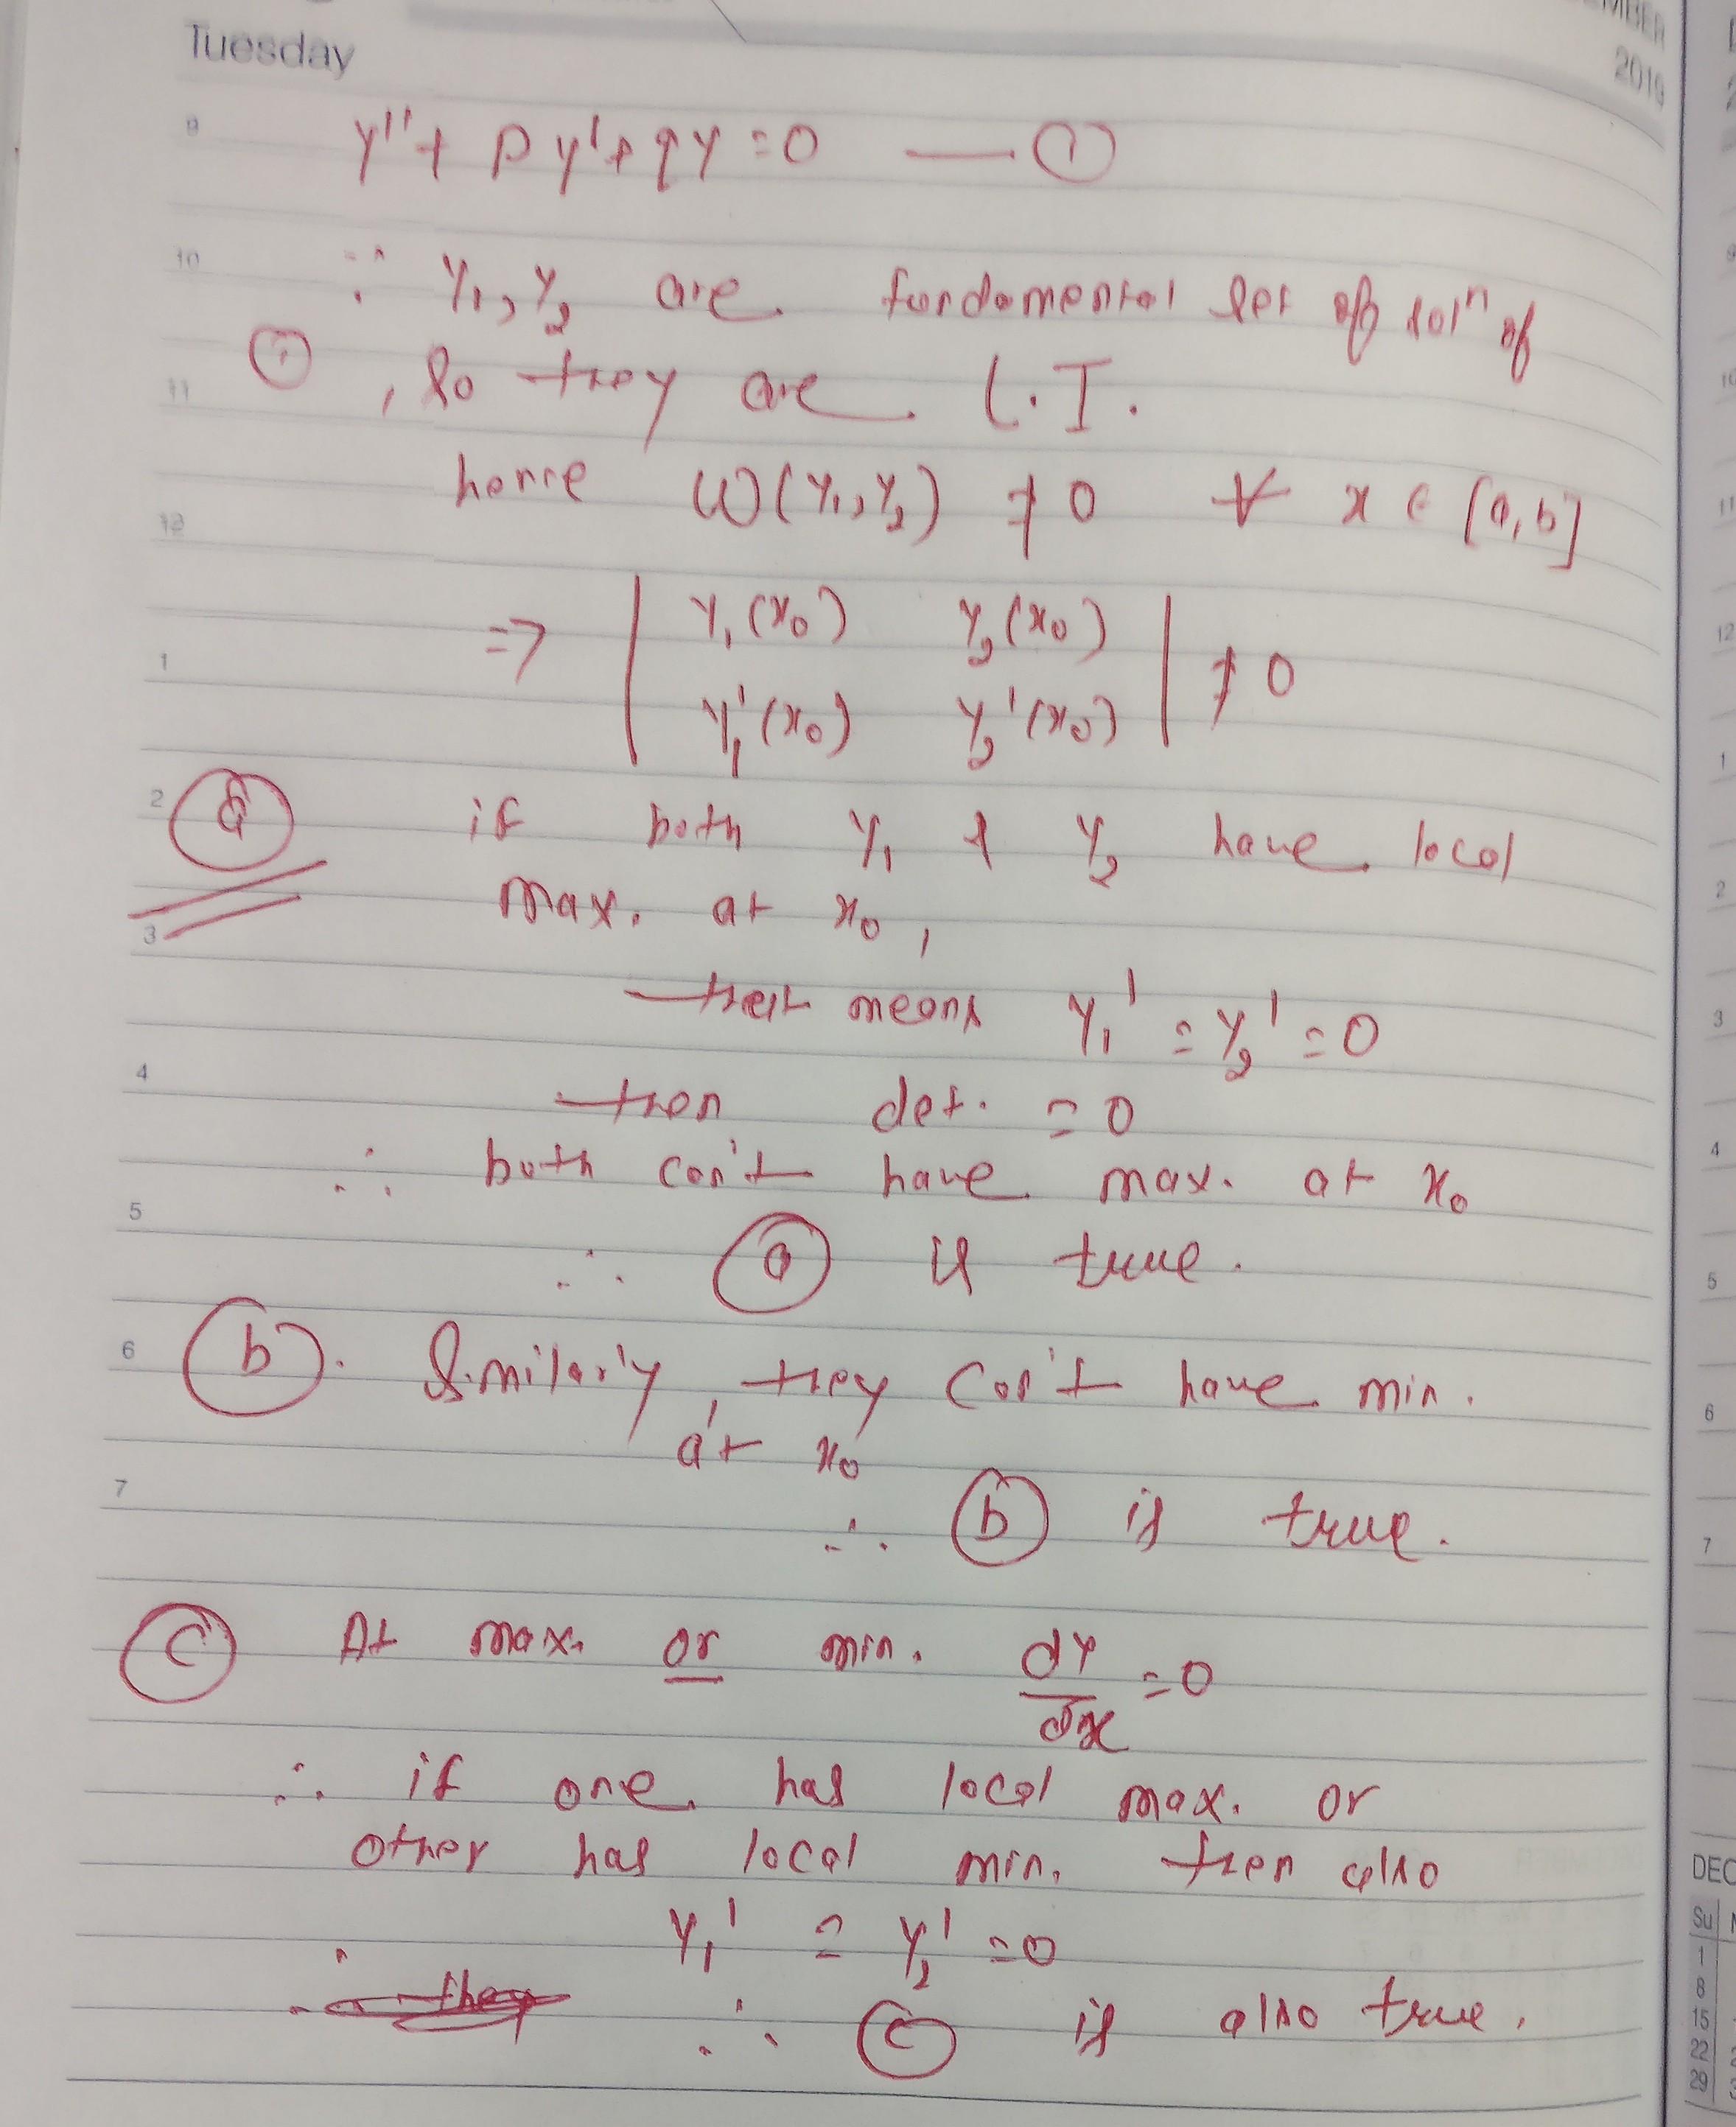 Tuesday
MBER
2019
9
y'' + py' + qy = 0 — ①
10
∵ y₁, y₂ are fundamental set of solⁿ of
11
①, so they are L.I.
hence W(y₁, y₂) ≠ 0 ∀ x ∈ [a, b]
12
⇒ | y₁(x₀) y₂(x₀) |
1
| y₁'(x₀) y₂'(x₀) | ≠ 0
2
ⓐ if both y₁ & y₂ have local
max. at x₀,
3
that means y₁' = y₂' = 0
4
then det. = 0
∴ both can't have max. at x₀
5
∴ ⓐ is true.
6
ⓑ. Similarly, they can't have min.
at x₀
7
∴ ⓑ is true.
ⓒ At max. or min. dy/dx = 0
∴ if one has local max. or
other has local min. then also
y₁' = y₂' = 0
∴ ⓒ is also true.
9
10
11
12
1
2
3
4
5
6
7
DEC
Su
1
8
15
22
29